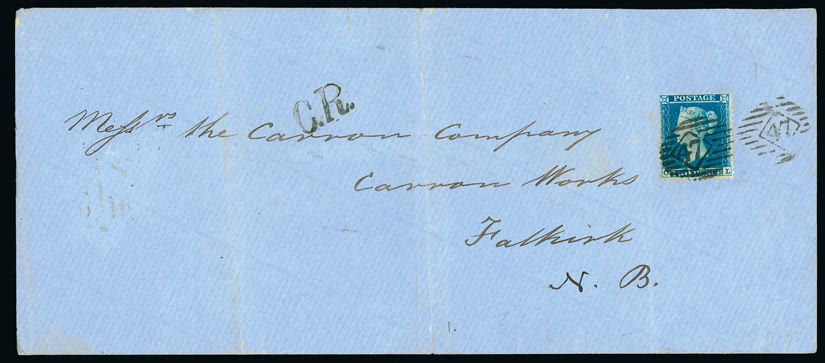 C.R.
Mess^rs the Carron Company
Carron Works
Falkirk
N. B.
POSTAGE
L
47
47